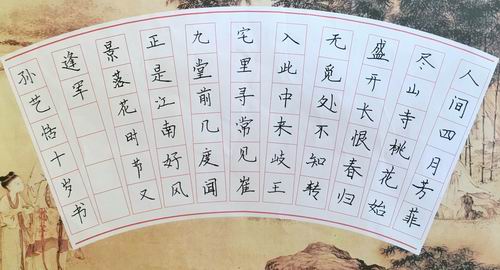 人间四月芳菲
尽山寺桃花始
盛开长恨春归
无觅处不知转
入此中来岐王
宅里寻常见崔
九堂前几度闻
正是江南好风
景落花时节又
逢军
孙艺恬十岁书